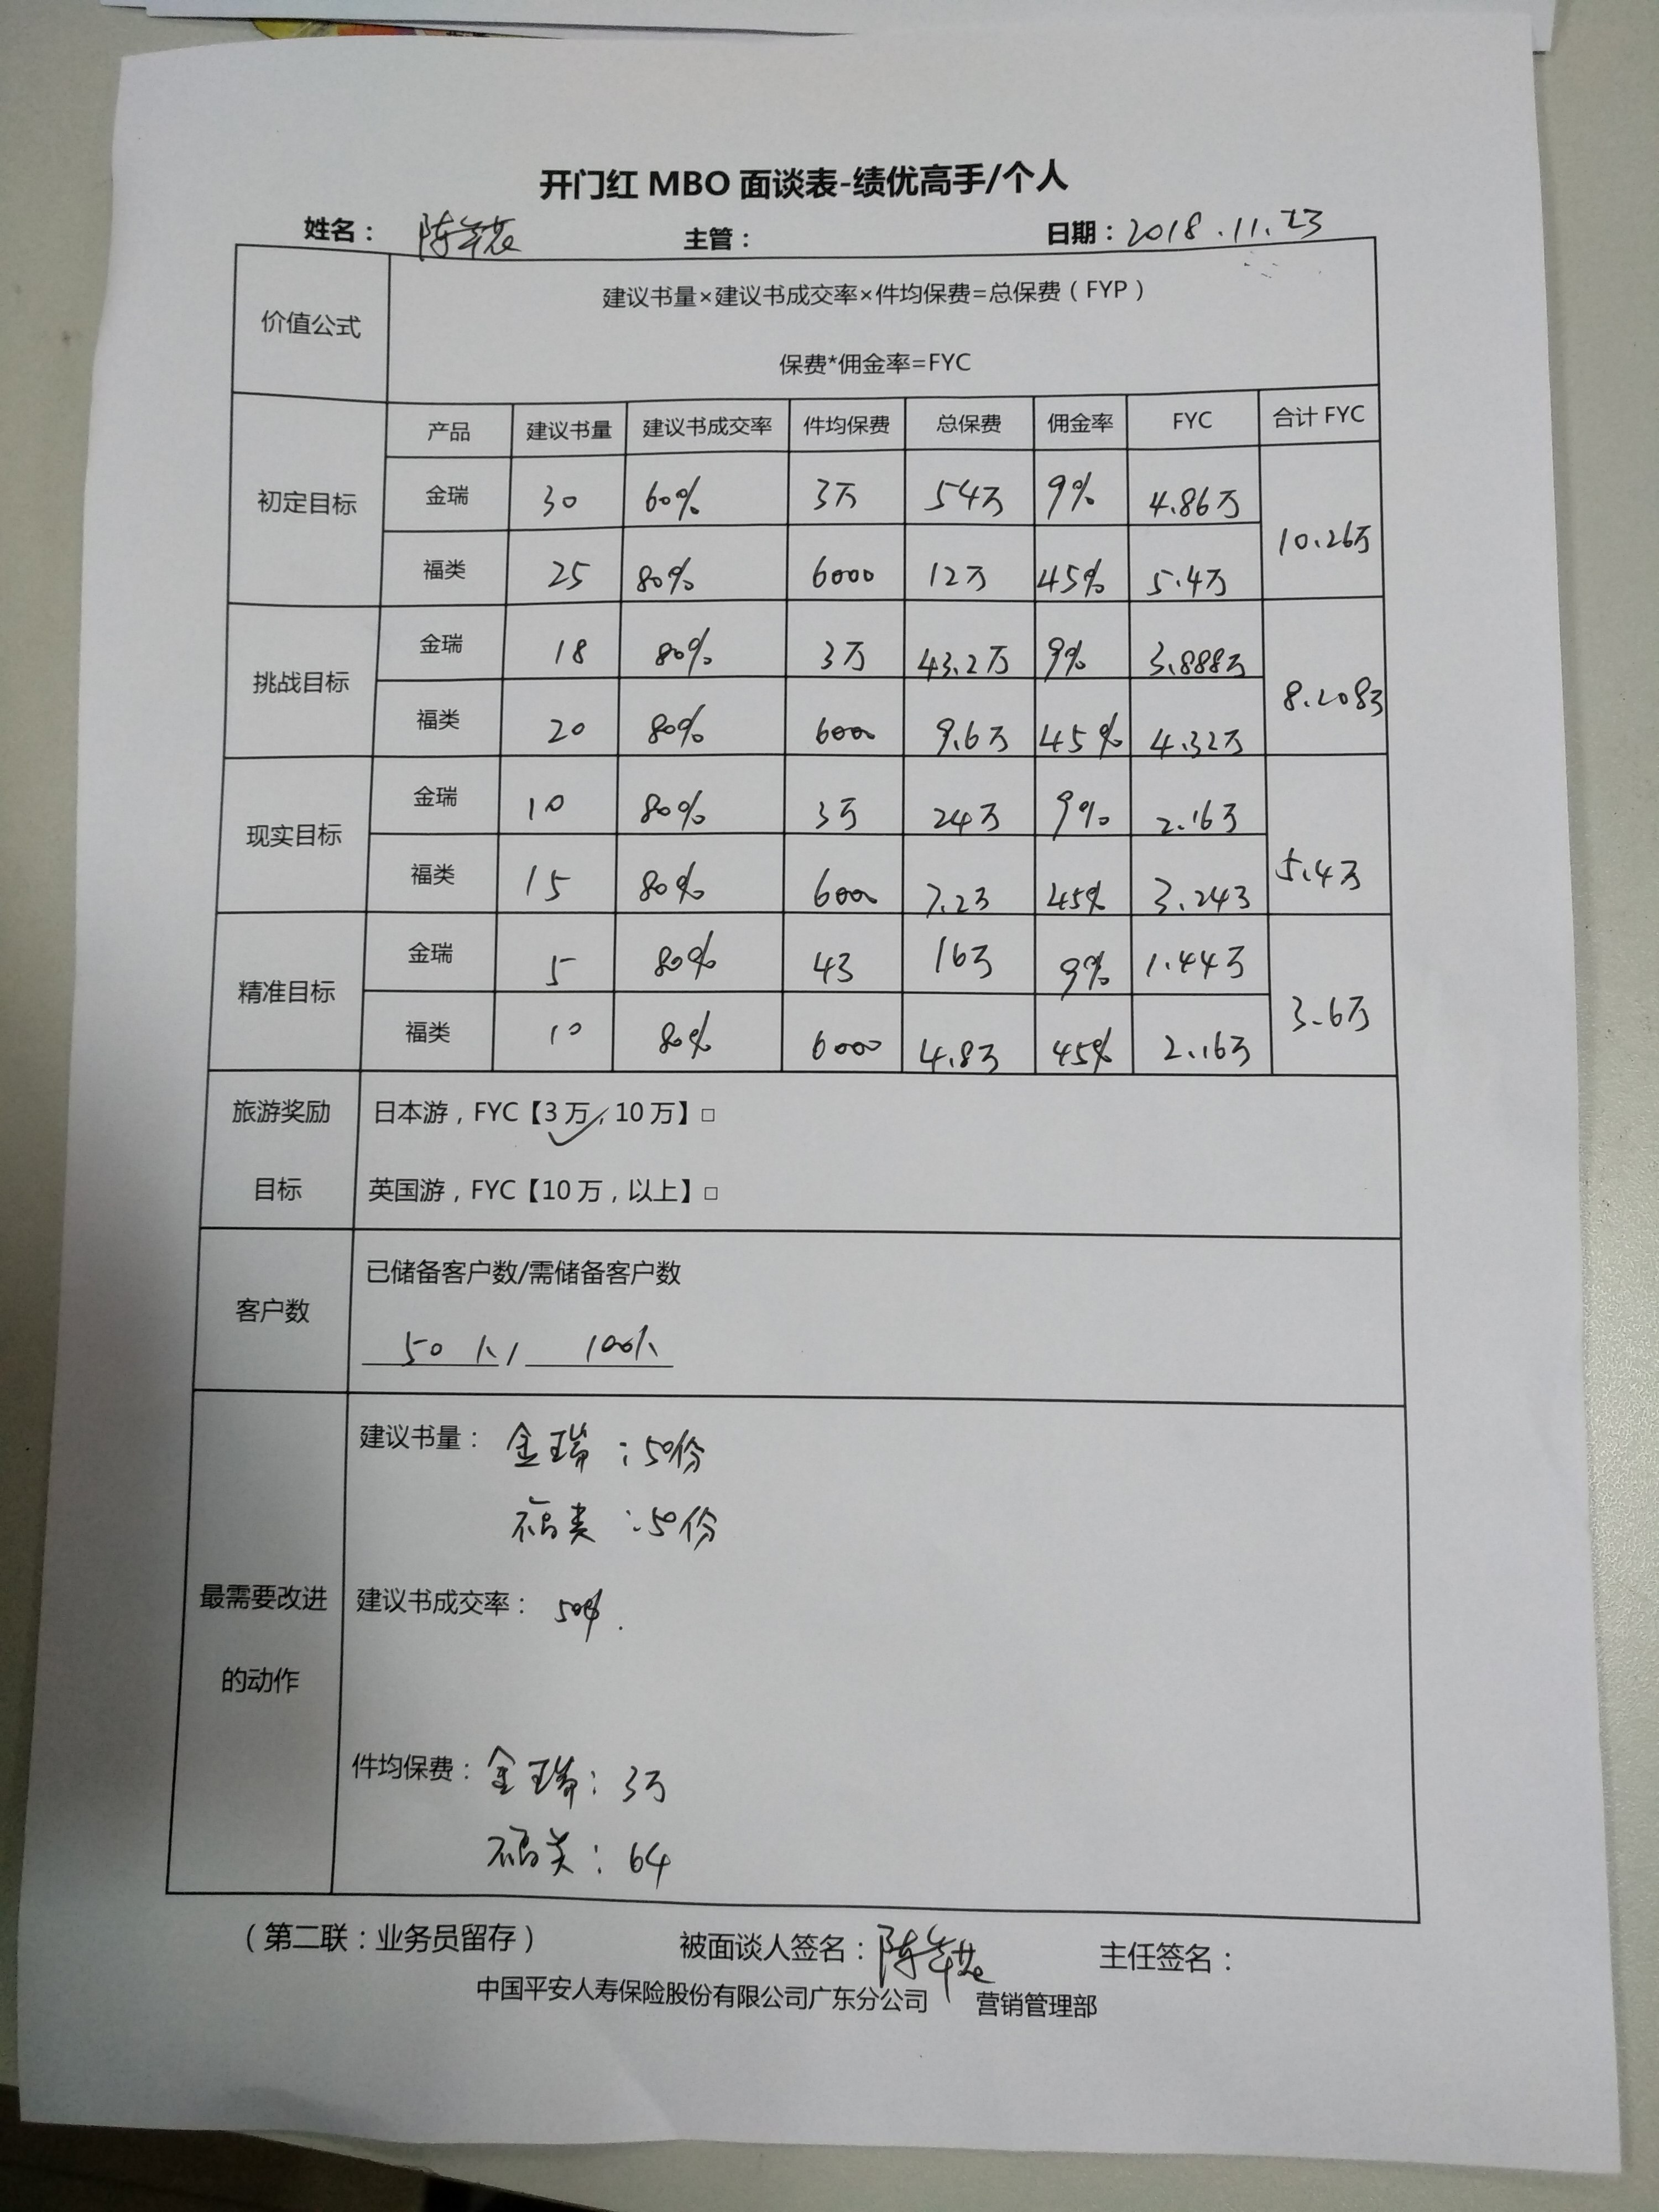 开门红 MBO 面谈表-绩优高手/个人
姓名： 陈 主管： 日期：2018.11.23
价值公式 建议书量×建议书成交率×件均保费=总保费（FYP）
保费*佣金率=FYC
产品 建议书量 建议书成交率 件均保费 总保费 佣金率 FYC 合计 FYC
初定目标 金瑞 30 60% 3万 54万 9% 4.86万 10.26万
福类 25 80% 6000 12万 45% 5.4万
挑战目标 金瑞 18 80% 3万 43.2万 9% 3.888万 8.208万
福类 20 80% 6000 9.6万 45% 4.32万
现实目标 金瑞 10 80% 3万 24万 9% 2.16万 5.4万
福类 15 80% 6000 7.2万 45% 3.24万
精准目标 金瑞 5 80% 4万 16万 9% 1.44万 3.6万
福类 10 80% 6000 4.8万 45% 2.16万
旅游奖励 日本游，FYC【3万，10万】□
目标 英国游，FYC【10万，以上】□
客户数 已储备客户数/需储备客户数
50 人/ 100人
最需要改进
的动作
建议书量： 金瑞：50份
福类：50份
建议书成交率： 50%.
件均保费：金瑞：3万
福类：64
（第二联：业务员留存） 被面谈人签名：陈 主任签名：
中国平安人寿保险股份有限公司广东分公司 营销管理部